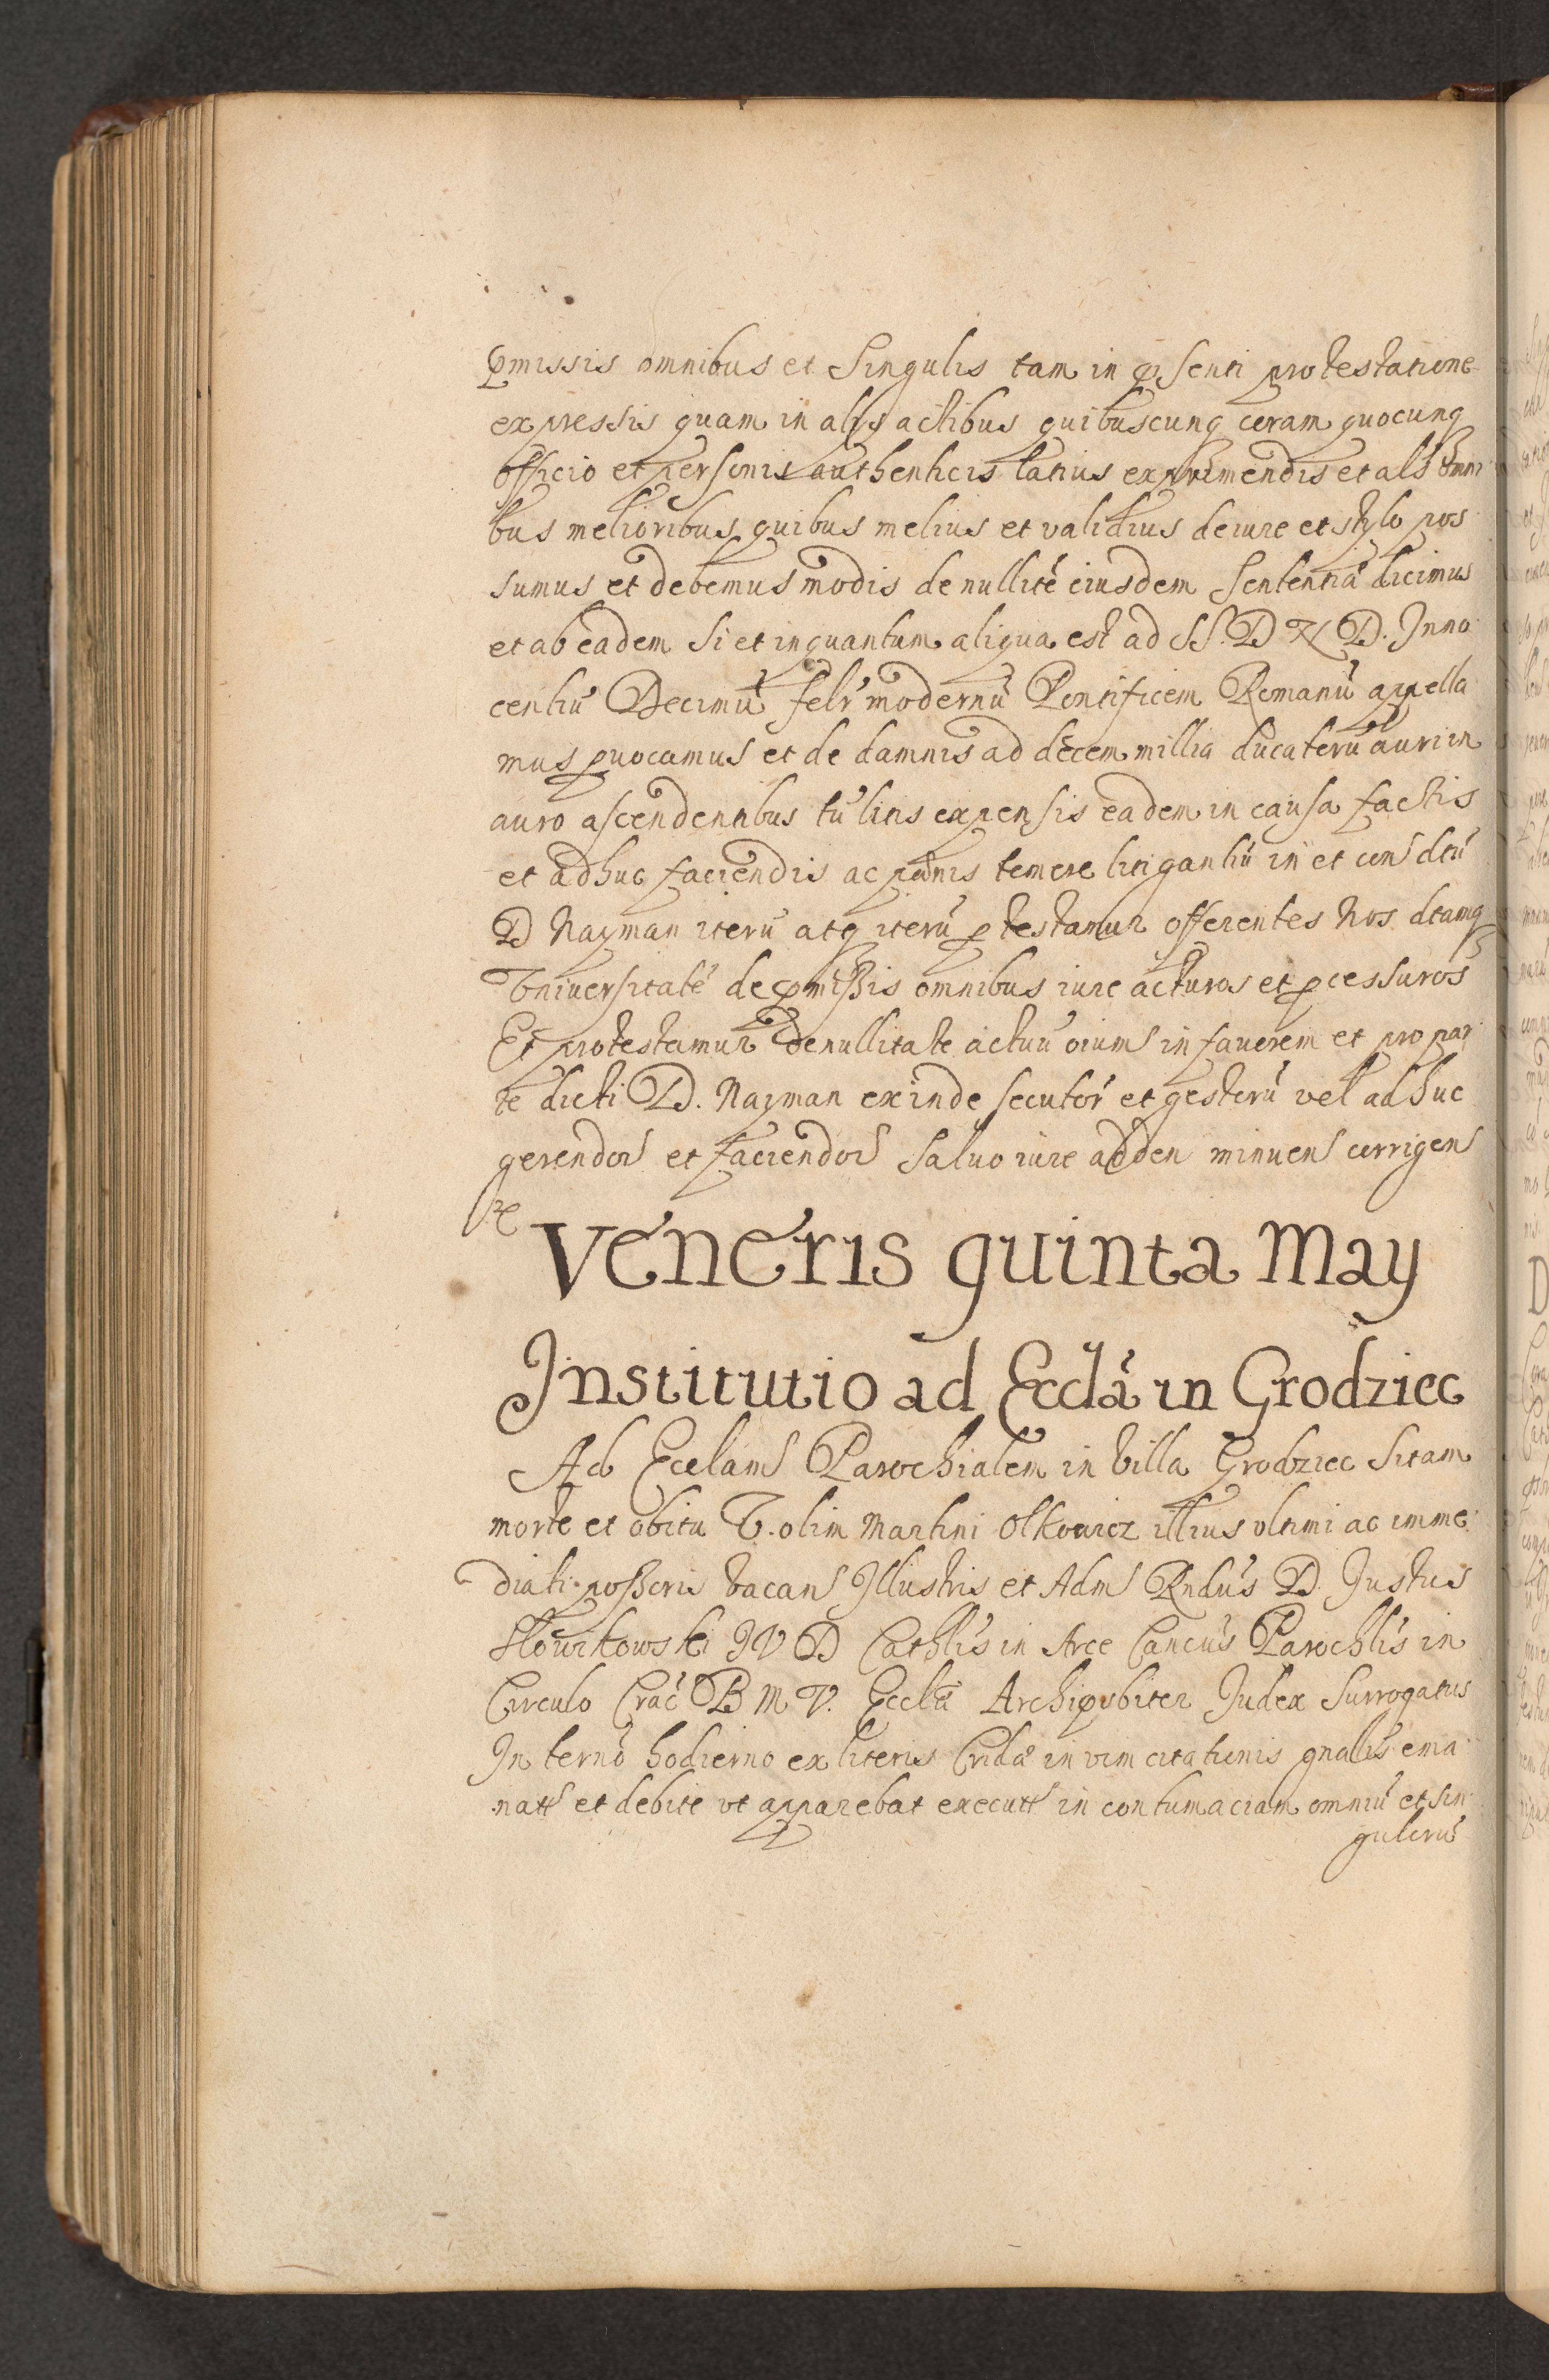 pmissis omnibus et Singulis tam in pSenti protestatione
expressis quam in alys actibus quibuscunq coram quocunq
officio et personis authenticis latius exprimendis et als omni
bus melioribus quibus melius et validius de iure et stylo pos
sumus et debemus modis de nullitē eiusdem Sententiā dicimus
et ab eadem Si et inquantum aliqua est ad SS. D N D. Inno
centiū Decimū felr modernū Pontificem Romanū appella
mus puocamus et de damnis ad decem millia ducatorū auri in
auro ascendentibus tū litis expensis eadem in causa factis
et adhuc faciendis ac pœnis temere litigantiū in et con dtū
D Nayman iterū atq iterū ptestamur offerentes Nos dtamq
Vniversitatē de pmissis omnibus iure acturos et pcessuros
Et protestamur de nullitate actuū oium in favorem et pro par
te dicti D. Nayman exinde secutor et gestorū vel adhuc
gerendor et faciendor Saluo iure adden minuen corrigen
rc
Veneris quinta May
Institutio ad Ecclā in Grodziec
Ad Ecclam Parochialem in Villa Grodziec Sitam
morte et obitu V. olim Martini Olkowicz illius vltimi ac imme
diati possoris vacan Illustris et Adm Rndus D. Justus
Słowikowski I V D Cathlis in Arce Cancus Parochlis in
Circulo Crac B M V. Eccla Archipsbiter Judex Surrogatus
In termō hodierno ex literis Cridæ in vim citationis gnalis ema
natt et debite vt apparebat executt in contumaciam omniū et sin
gulorū